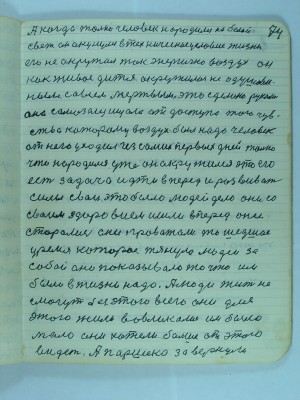 А когда только человек народился на белый 54
свет он окунулся в технические условие жизни
его не окружал ток энергично воздух он
как живое дитя окружили не одушевлен
ным совсем мертвым это сделано руками
она сама защищала от доступа того чув-
ства которому воздух был надо человек
от него уходил из самых первых дней только
что народился уже он окружился это его
есть задача идти вперед и развивать
силы свои это было людей дело они со
своим здоровием шли вперед они
старались они провожали то шедшее
время которое тянуло людей за
собой оно показывало то что им
было в жизни надо. А люди жить не
смогут без этого всего они для
этого жили вовлекали им было
мало они хотели больше от этого
видеть. А Паршеко завернули